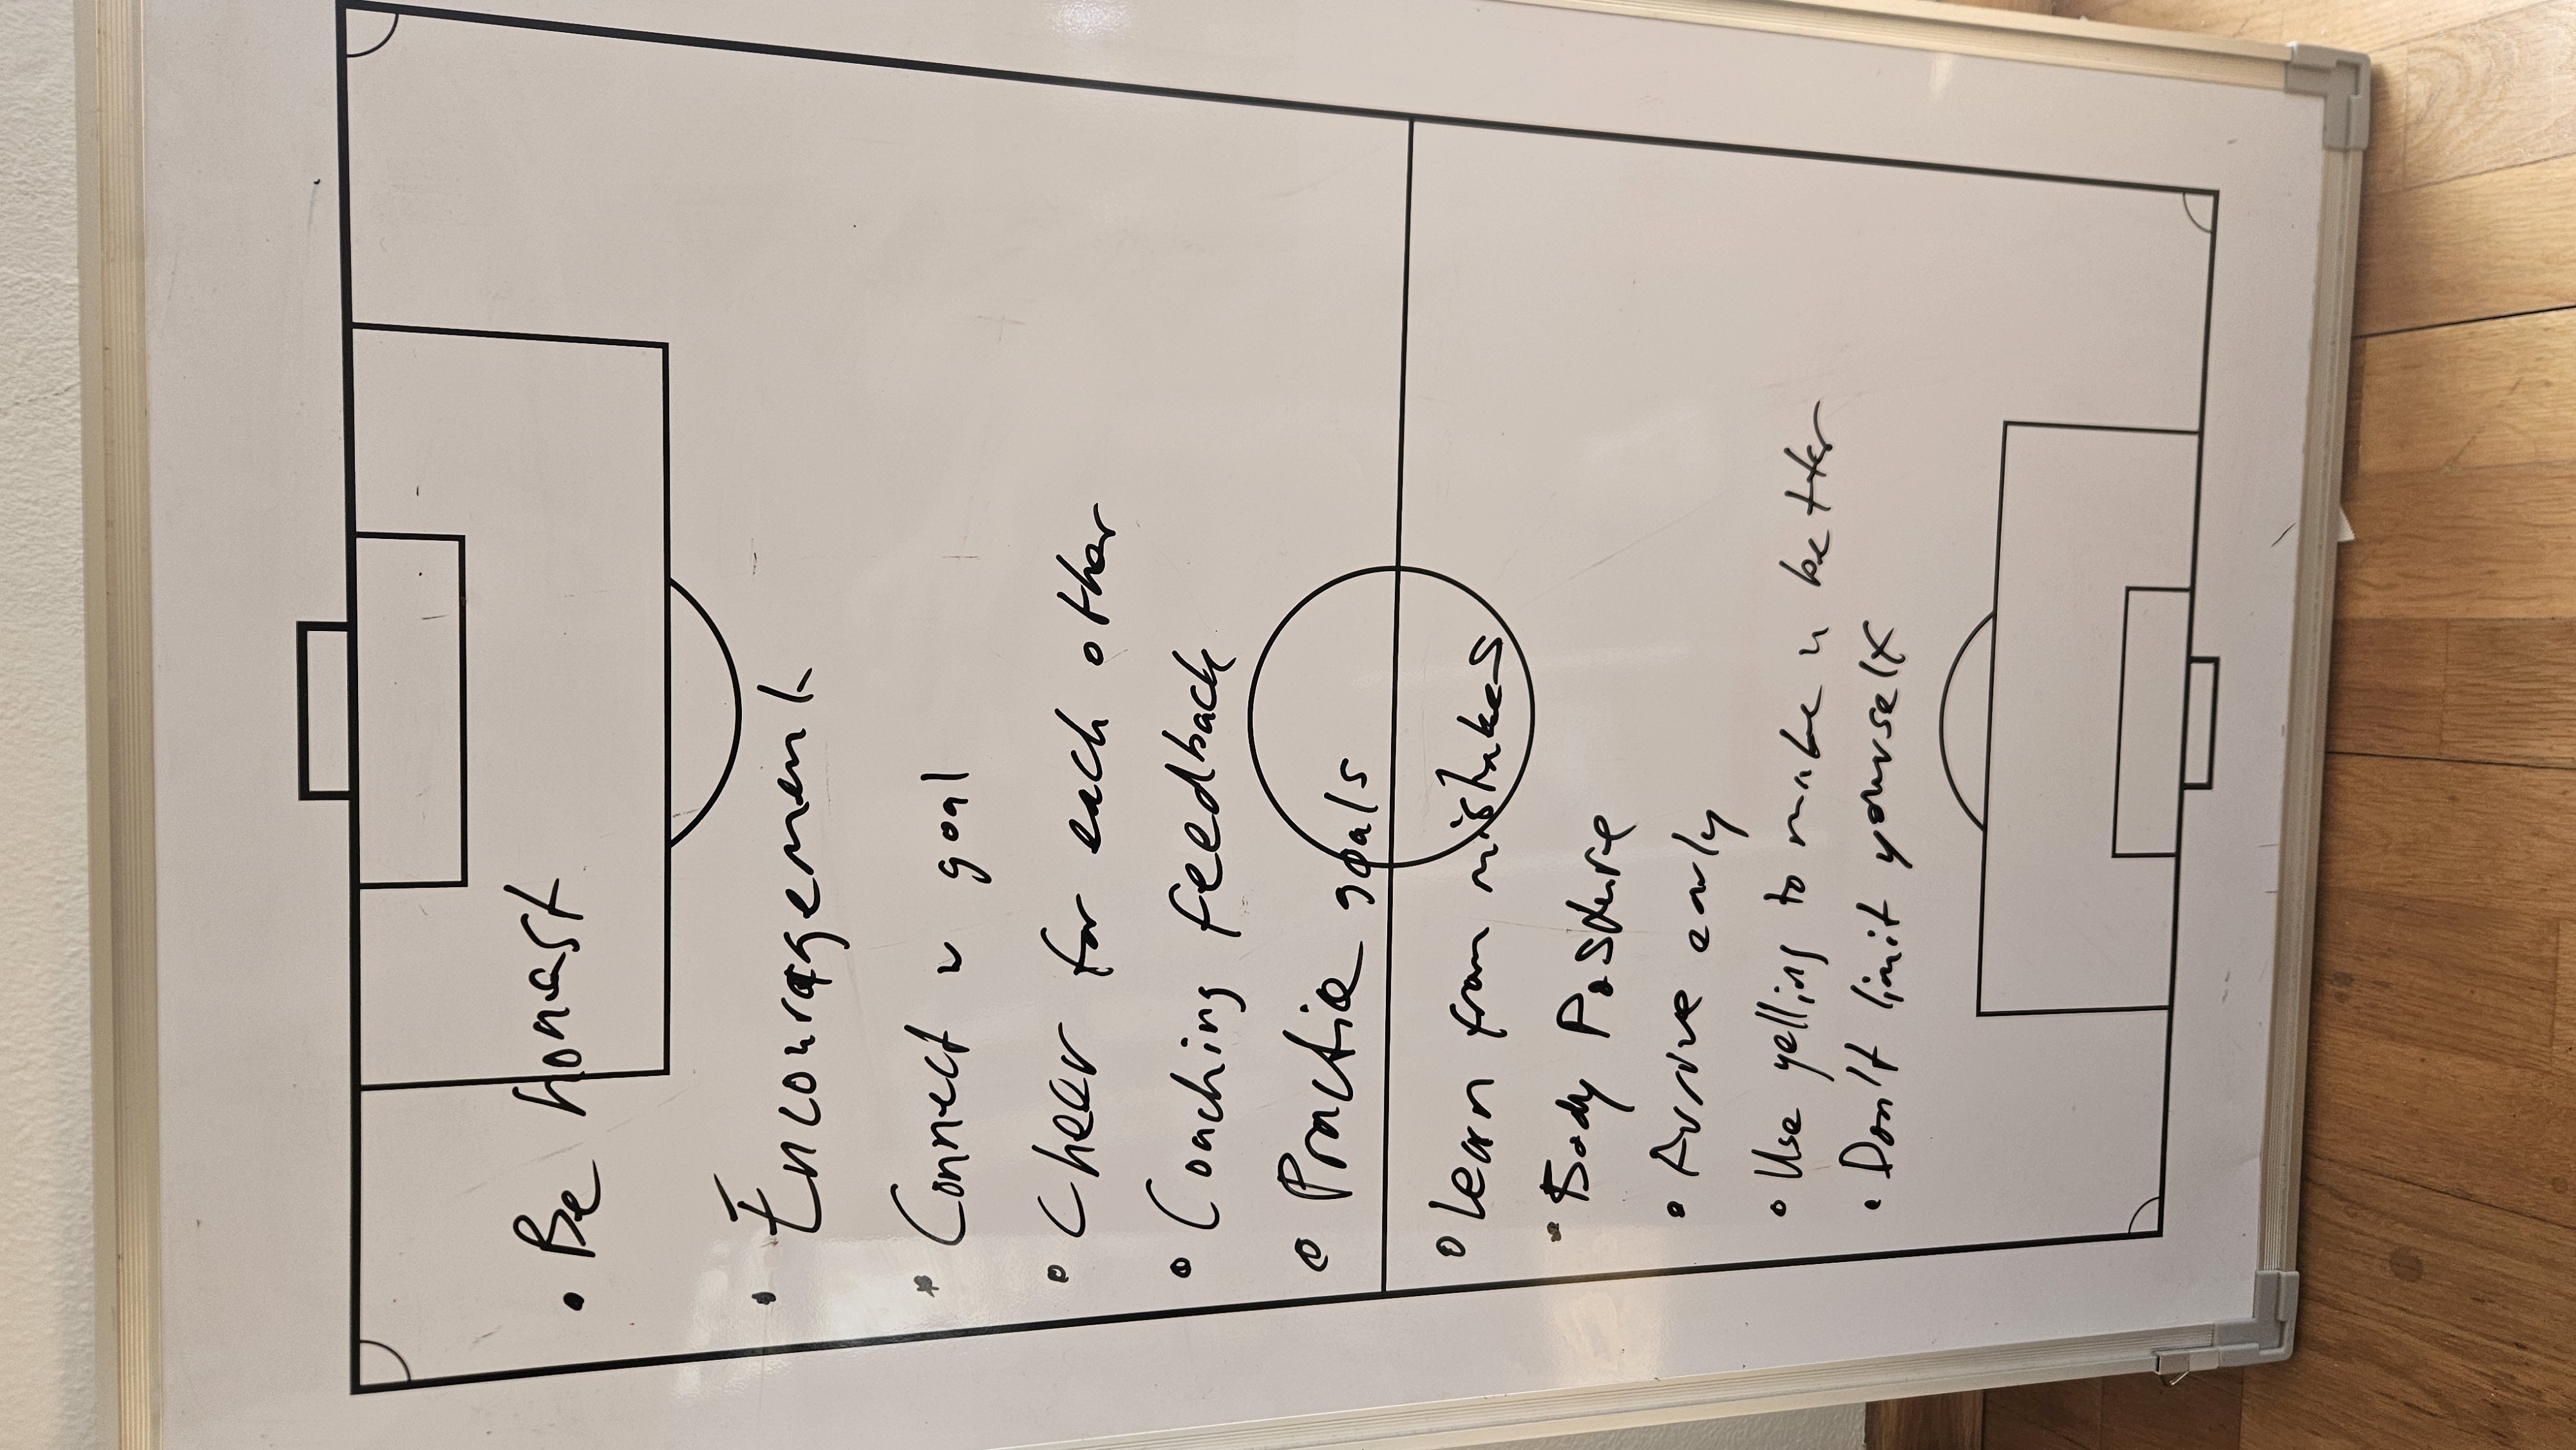 • Be honest
• Encouragement
• Connect w goal
• Cheer for each other
• Coaching feedback
• Practice goals
• Learn from mistakes
• Body Posture
• Arrive early
• Use yelling to make u better
• Don't limit yourself